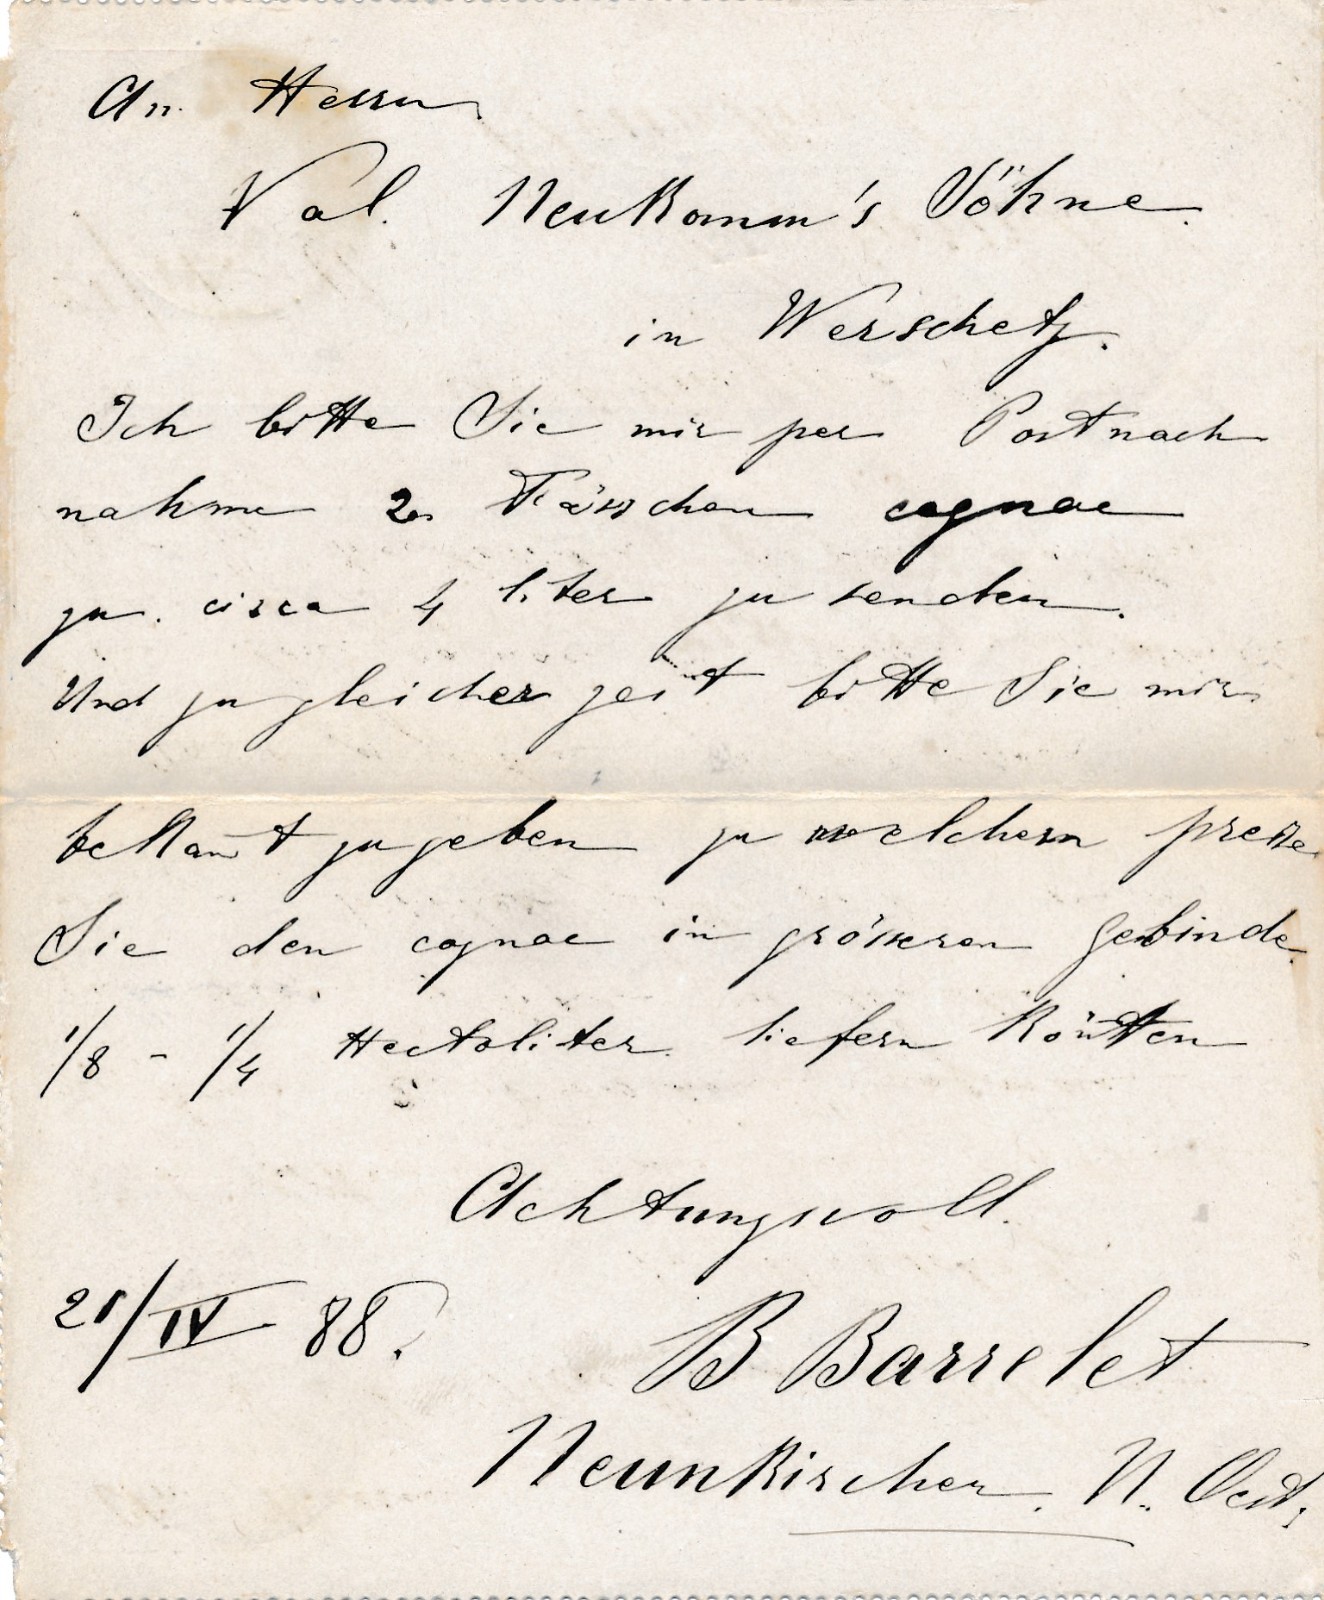 An Herrn
Val. Neukomm's Söhne.
in Werschetz.
Ich bitte Sie mir per Postnach
nahme 2 Fässchen cognac
zu circa 4 liter zu senden.
Und zu gleicher zeit bitte Sie mir
bekan̄t zu geben zu welchem preise
Sie den cognac in grösseren Gebinde
1/8 - 1/4 Hectoliter liefern kön̄ten
Achtungsvoll.
21/IV 88.
B Barrelet
Neunkirchen. N. Oest.